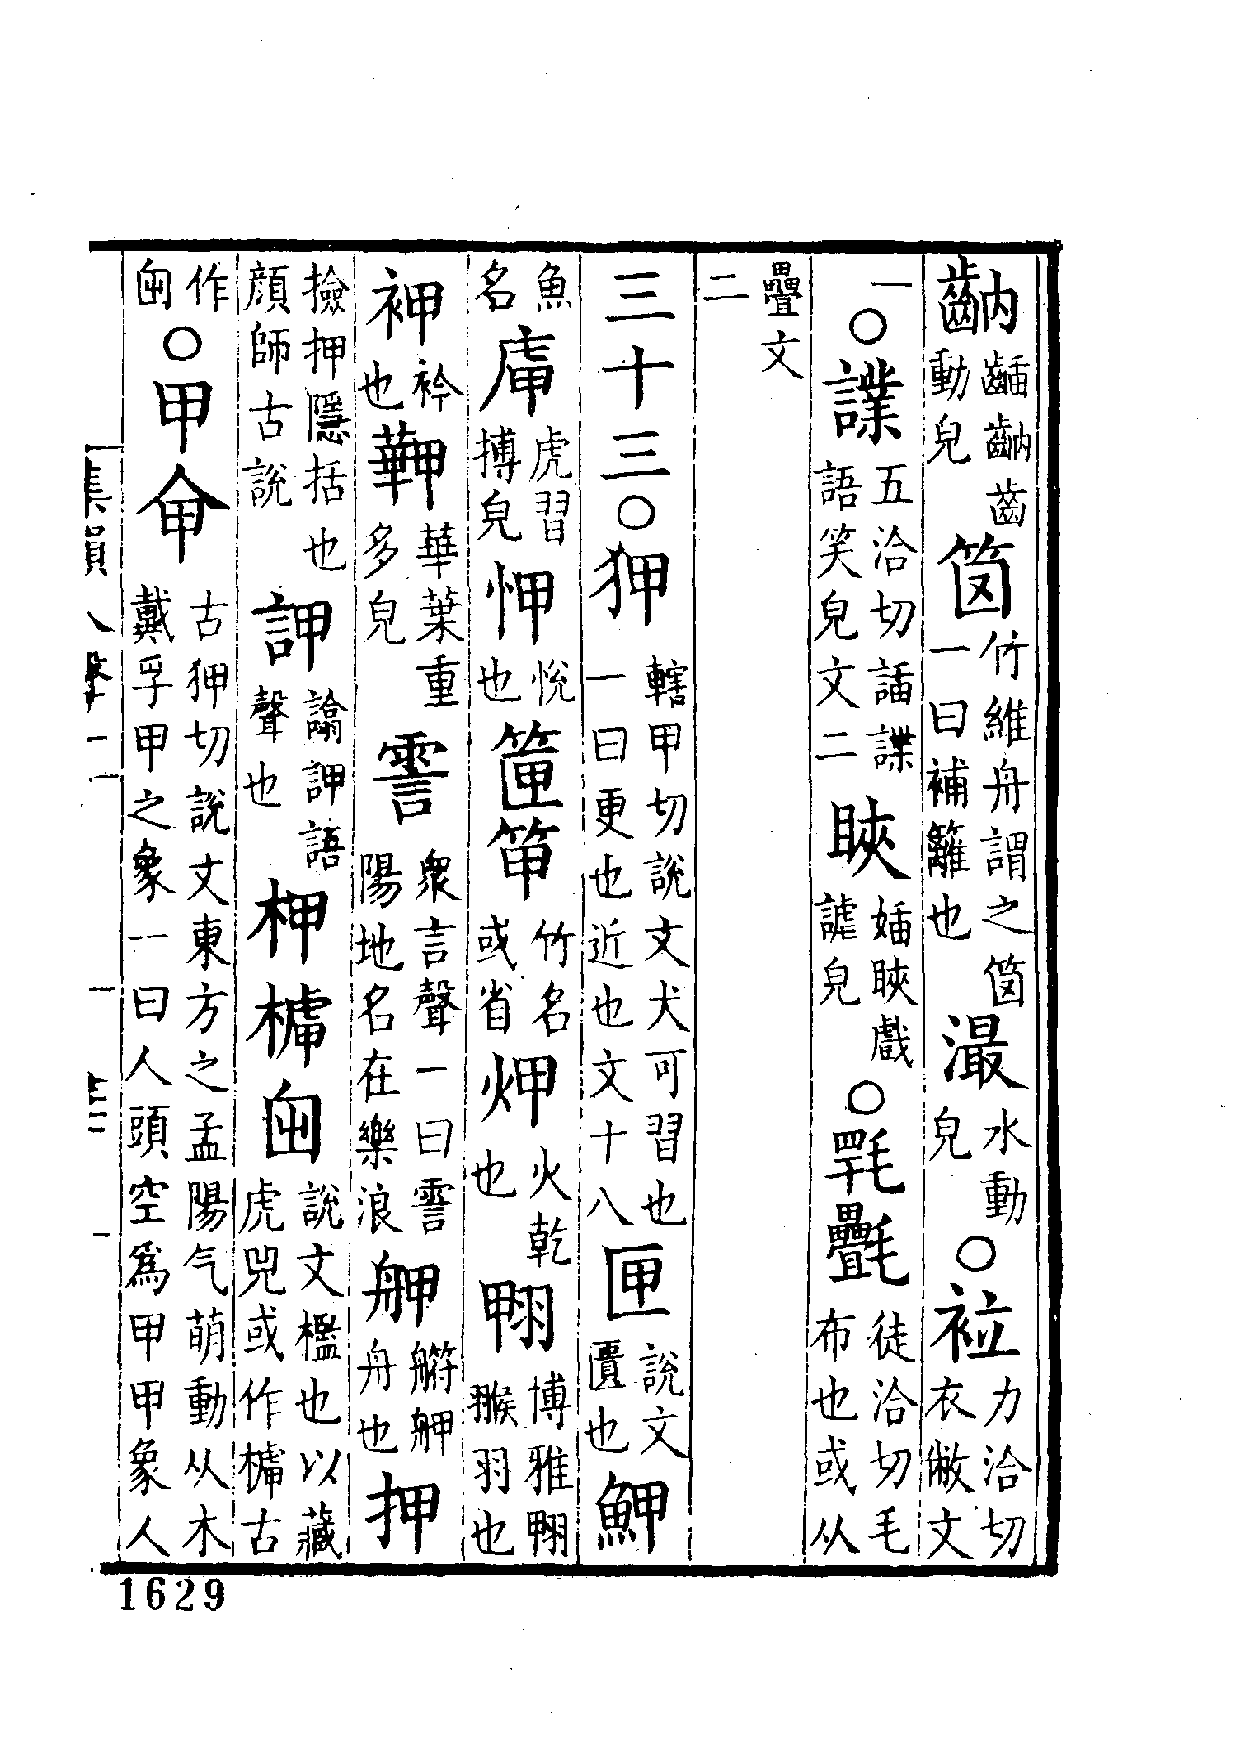 䶎䶢䶎齒動皃箚竹維舟謂之箚一曰補籬也濈水動皃○𧙀力洽切衣敝文
一○䜓五洽切䛽䜓語笑皃文二䀹婳䀹戲謔皃○㲲氎徒洽切毛布也或从
疊文二
三十三○狎轄甲切說文犬可習也一曰更也近也文十八匣說文匱也魻
魚名虖虎習搏皃㤉悅也筪𥬇竹名或省炠火乾也翈博雅翈翭羽也
衶衿也䕛華葉重多皃霅衆言聲一曰霅陽地名在樂浪舺艀舺舟也押
撿押隱括也顏師古說䛅譀䛅語聲也柙㯕𠥹說文檻也以藏虎兕或作㯕古
作𠥹○甲𠇚古狎切說文東方之孟陽气萌動从木戴孚甲之象一曰人頭空爲甲甲象人
集韻入聲十
1629